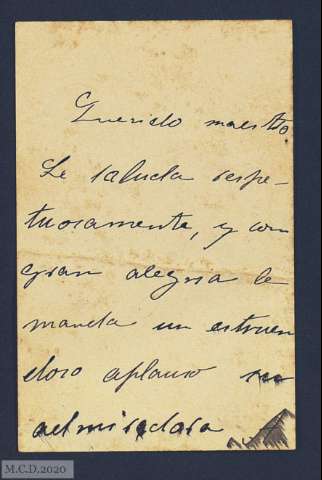 Querido maestro
Le saluda respe-
tuosamente, y con
gran alegria le
manda un estruen
doso aplauso su
admiradora
M.C.D.2020